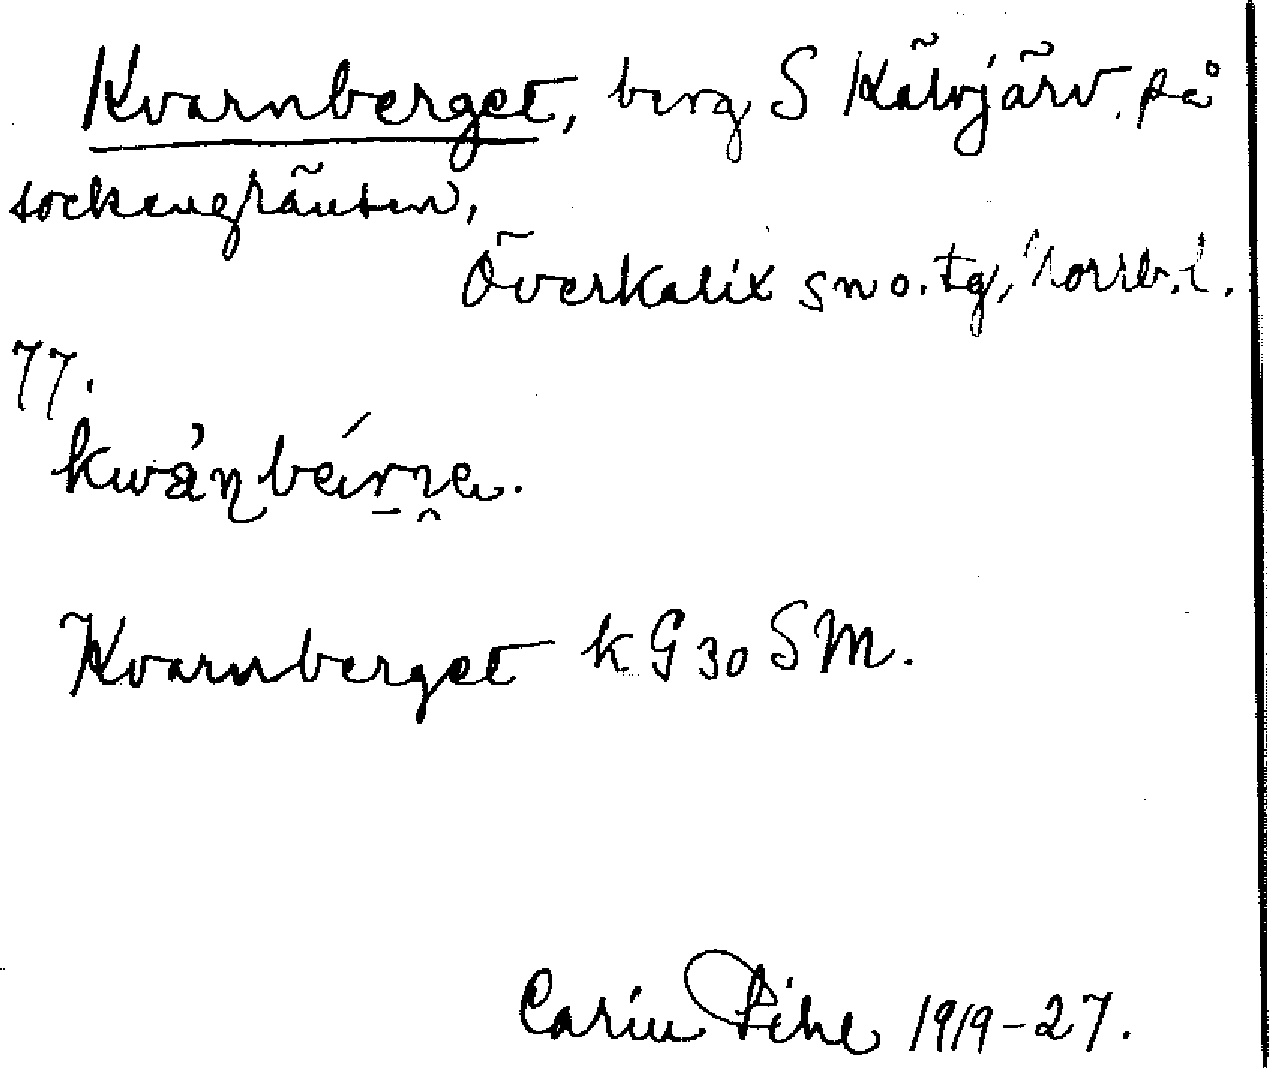 Kvarnberget, berg S Kälvjärv på
sockengränsen,
Överkalix sn o. tg, Norrb. l.
77.
kwáṇbérṇa.
Kvarnberget kG30SM.
Carin Pihl 1919-27.